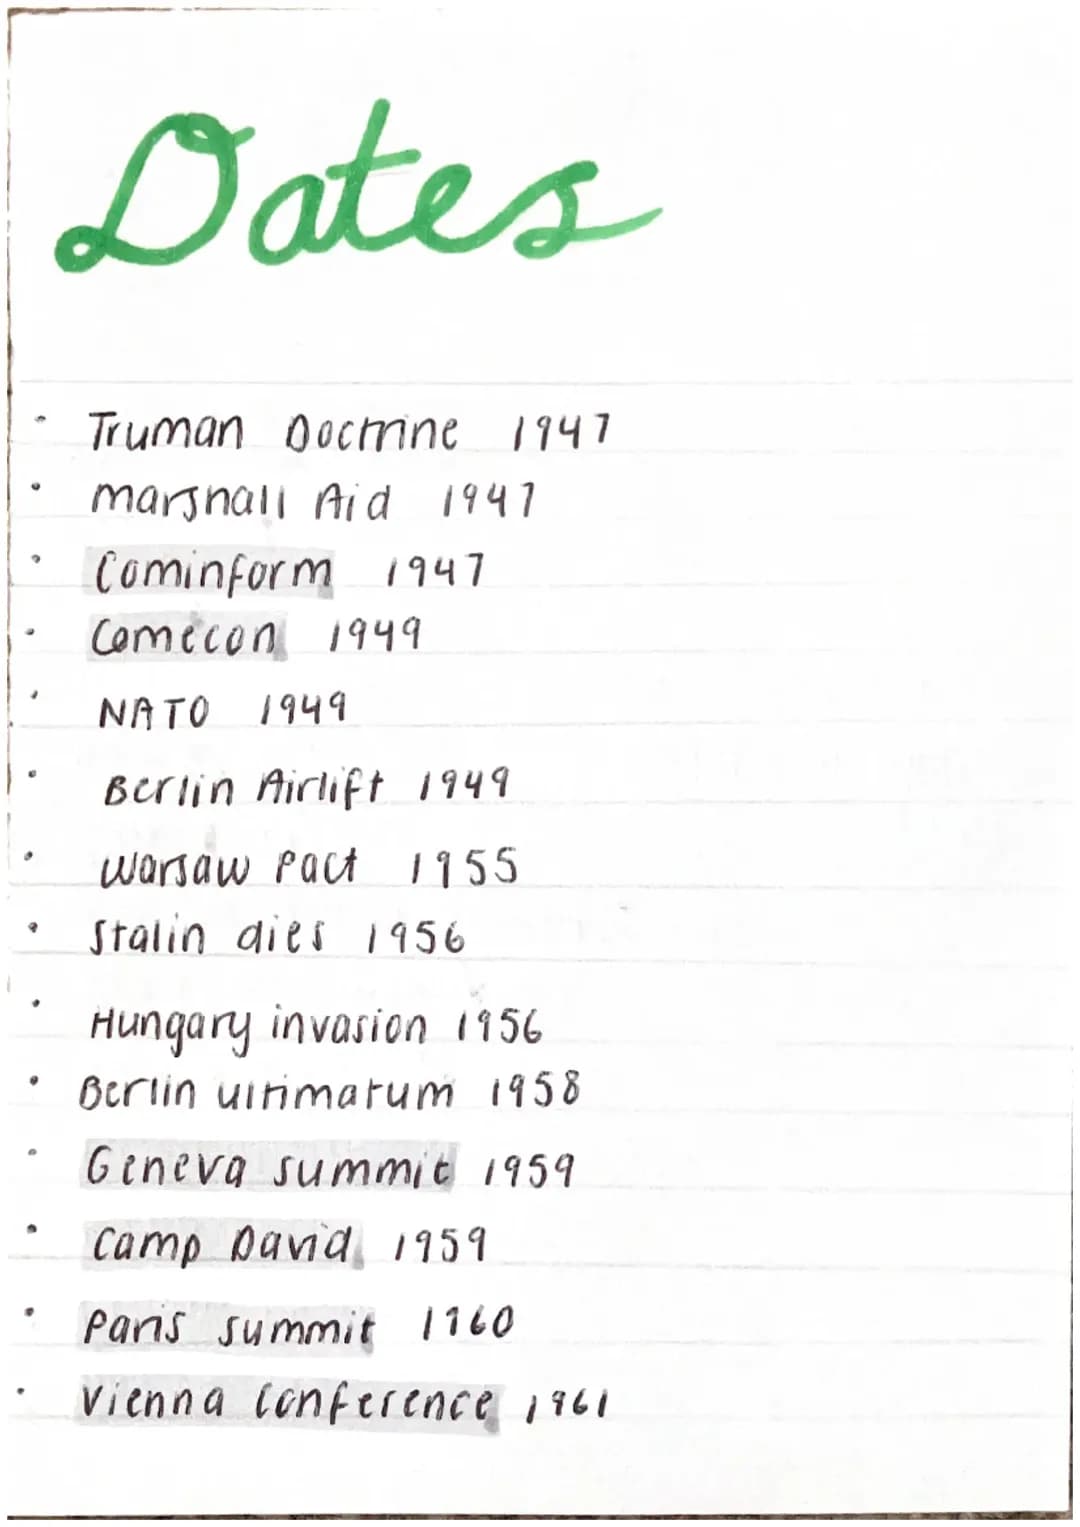 Dates
Truman Doctrine 1947
Marshall Aid 1947
Cominform 1947
Comecon 1949
NATO 1949
Berlin Airlift 1949
Warsaw Pact 1955
Stalin dies 1956
Hungary invasion 1956
Berlin ultimatum 1958
Geneva summit 1959
Camp David 1959
Paris summit 1960
Vienna Conference 1961